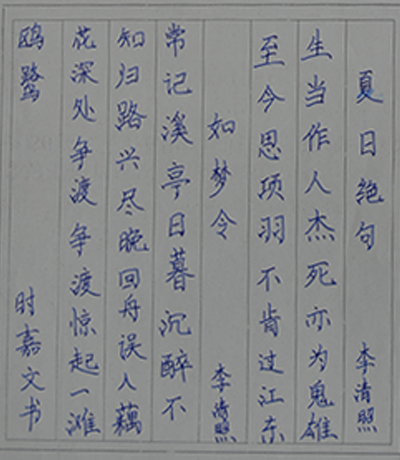 夏日绝句 李清照
生当作人杰死亦为鬼雄
至今思项羽不肯过江东
如梦令 李清照
常记溪亭日暮沉醉不
知归路兴尽晚回舟误入藕
花深处争渡争渡惊起一滩
鸥鹭 时嘉文书